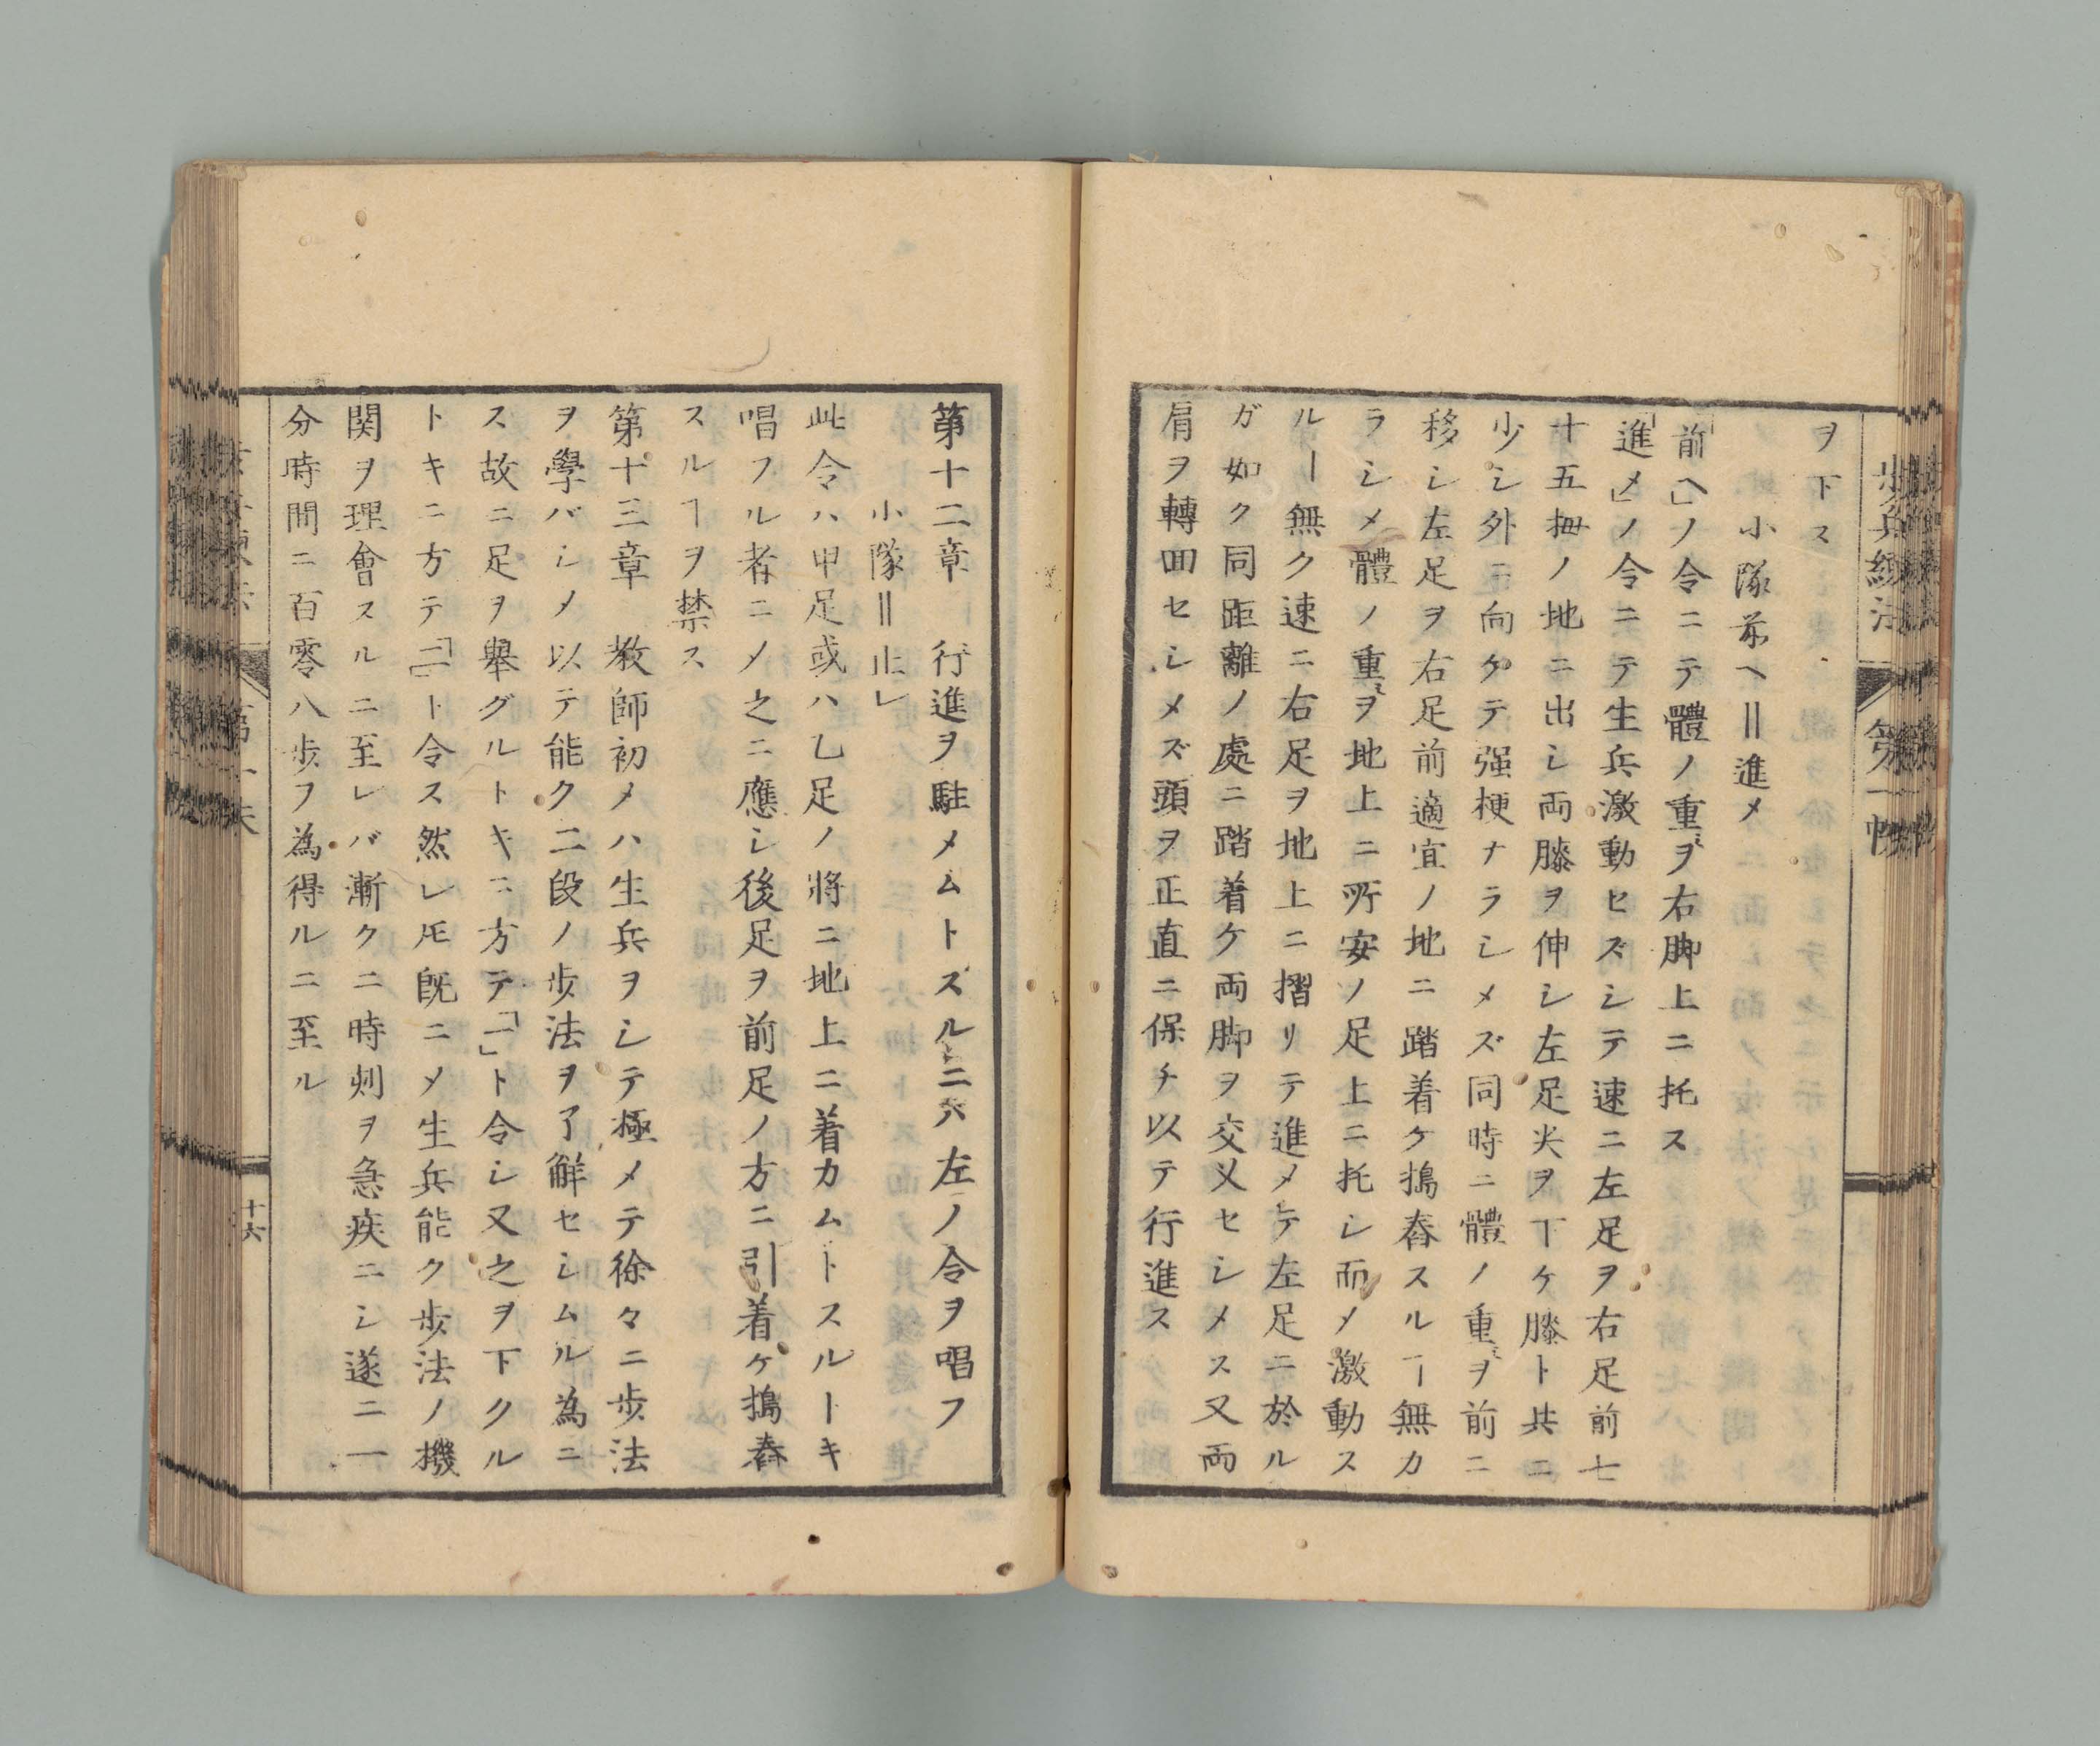 ヲ下ス
小隊前ヘ‖進メ
「前ヘ」ノ令ニテ體ノ重ミヲ右脚上ニ托ス
「進メ」ノ令ニテ生兵激動セズシテ速ニ左足ヲ右足前七
十五拇ノ地ニ出シ両膝ヲ伸シ左足尖ヲ下ケ膝ト共ニ
少シ外ニ向ケテ强梗ナラシメズ同時ニ體ノ重ミヲ前ニ
移シ左足ヲ右足前適宜ノ地ニ踏着ケ搗舂スルー無カ
ラシメ體ノ重ミヲ地上ニ所安ノ足上ニ托シ而メ激動ス
ルー無ク速ニ右足ヲ地上ニ摺リテ進メテ左足ニ於ル
ガ如ク同距離ノ處ニ踏着ケ両脚ヲ交乂セシメス又両
肩ヲ轉回セシメズ頭ヲ正直ニ保チ以テ行進ス
歩兵練法 第一帙
第十二章　行進ヲ駐メムトスルニハ左ノ令ヲ唱フ
小隊‖止レ
此令ハ甲足或ハ乙足ノ將ニ地上ニ着カムトスルーキ
唱フル者ニメ之ニ應シ後足ヲ前足ノ方ニ引着ケ搗舂
スルヿヲ禁ス
第十三章　教師初メハ生兵ヲシテ極メテ徐々ニ歩法
ヲ學バシメ以テ能ク二段ノ歩法ヲ了解セシムル為ニ
ス故ニ足ヲ舉グルトキニ方テ「一」ト令シ又之ヲ下クル
トキニ方テ「二」ト令ス然レ𪜈既ニメ生兵能ク歩法ノ機
関ヲ理會スルニ至レバ漸クニ時刻ヲ急疾ニシ遂ニ一
分時間ニ百零八歩ヲ為得ルニ至ル
十六